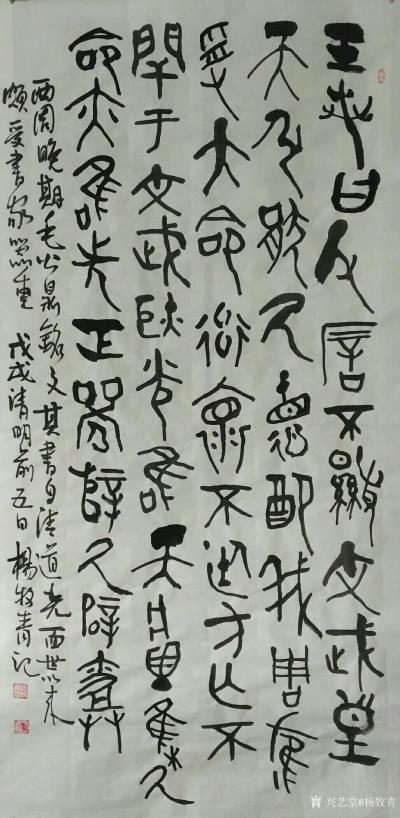 王若曰父厝不顯文武皇
天弘猒厥德配我周雁
受大命率懷不廷方亡不
閈于文武耿光隹天將集厥
命亦隹先正辥厥辟
西周晚期毛公鼎銘文其書自清道光面世以来
頗受書家器重 戊戌清明前五日 楊牧青记
兴艺堂@杨牧青